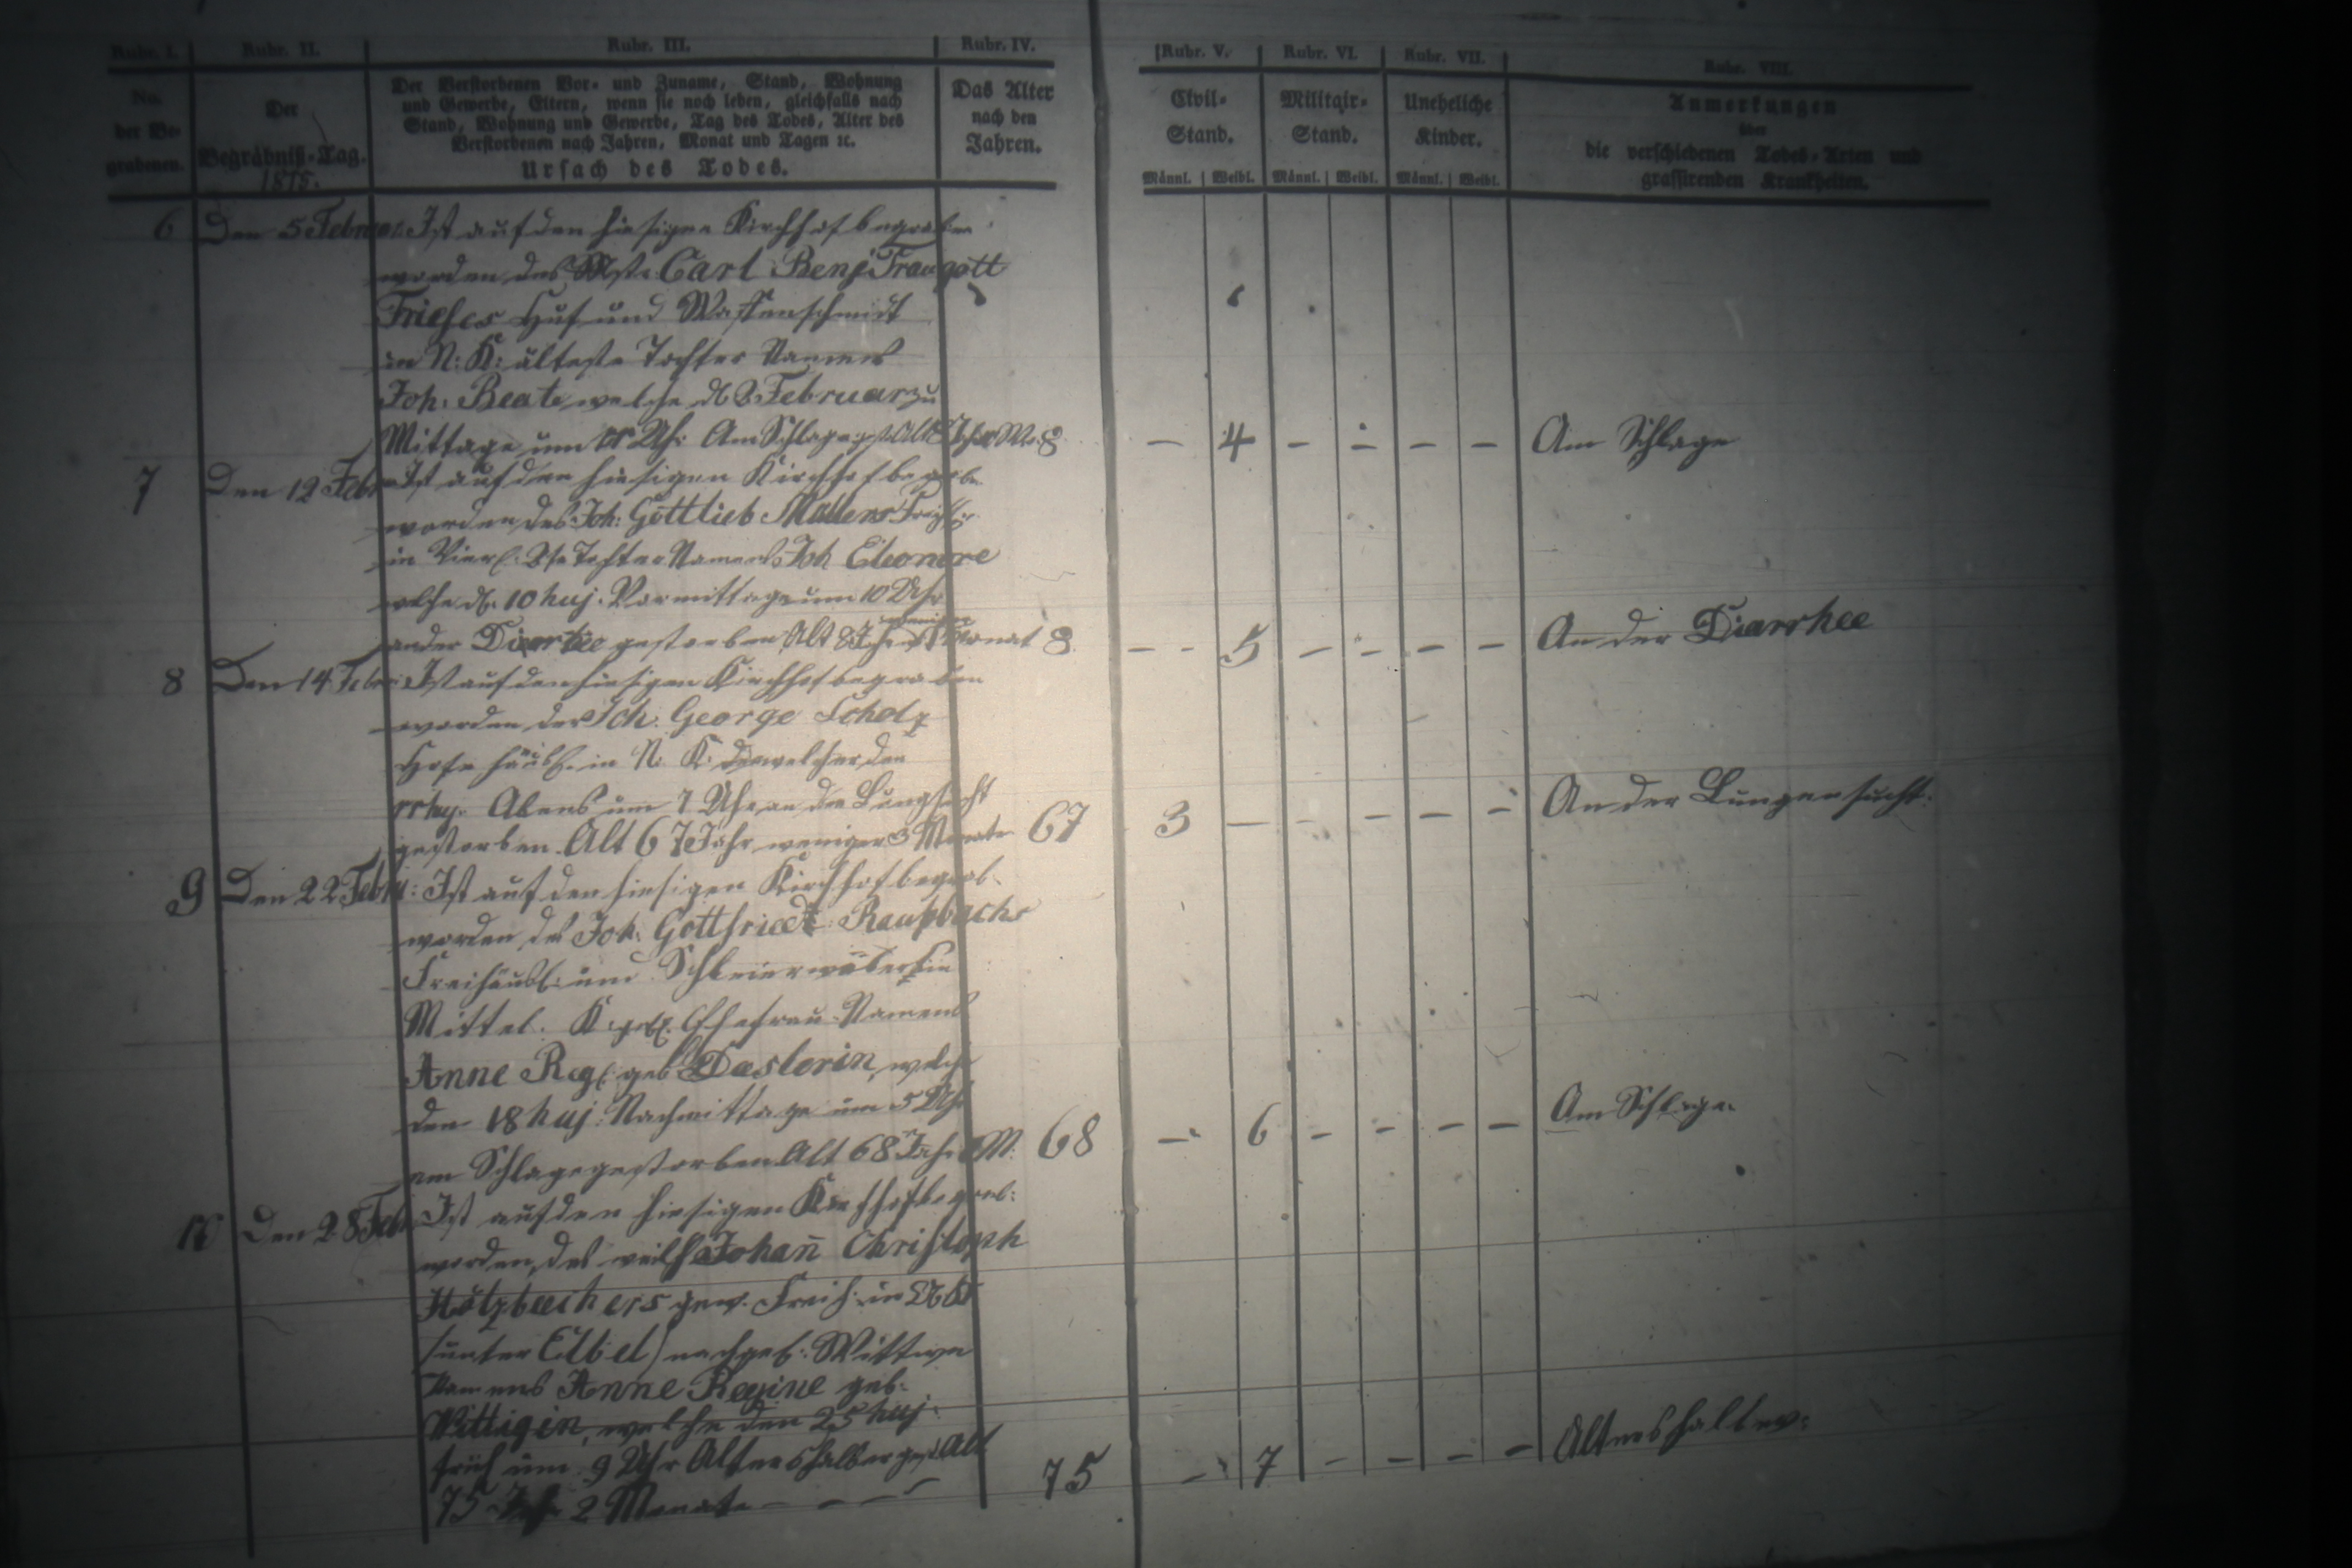 Rubr. I. Rubr. II. Rubr. III. Rubr. IV. Rubr. V. Rubr. VI. Rubr. VII. Rubr. VIII.
No. der Begrabenen.
Der Begräbniß-Tag.
1815.
Der Verstorbenen Vor- und Zuname, Stand, Wohnung
und Gewerbe, Eltern, wenn sie noch leben, gleichfalls nach
Stand, Wohnung und Gewerbe, Tag des Todes, Alter des
Verstorbenen nach Jahren, Monat und Tagen ꝛc.
Ursach des Todes.
Das Alter
nach den
Jahren.
Civil-
Stand.
Militair-
Stand.
Uneheliche
Kinder.
Anmerkungen
über
die verschiedenen Todes-Arten und
grassirenden Krankheiten.
Männl. Weibl. Männl. Weibl. Männl. Weibl.
6 Den 5 Februar. Ist auf den hiesigen Kirchhof begraben
worden des Mstr. Carl Benj Traugott
Frieses Huf und Waffenschmidt
in N: K: älteste Tochter Namens
Joh. Beate welche d 2 Februar zu
Mittage um Uhr Am Schlage gest. Alt 8 8 – 4 – – – – Am Schlage
7 Den 12 Febr Ist auf den hiesigen Kirchhof begrabe
worden des Joh: Gottlieb
in Tochter Namens Joh Eleonore
welche d. 10 huj. Vormittage um 10 Uhr
an der gestorben Alt 8 Jahr weniger Monat 8 – – 5 – – – – An der Diarrhee
8 Den 14 Febr Ist auf den hiesigen Kirchhof begraben
worden der Joh. George Scholz
Hofehäusl. in N: K: welcher den
huj. Abens um 7 Uhr an der Lungsucht
gestorben Alt 67 Jahr weniger 3 Monate 67 3 – – – – – An der Lungensucht:
9 Den 22 Febr: Ist auf den hiesigen Kirchhof begrab.
worden des Joh. Gottfriedt Raupbachs
Freihäusl: und Schleierwäber in
Mittel. K: Ehefrau Namens
Anne Reg. geb welche
den 18 huj: Nachmittage um 5 Uhr
am Schlage gestorben Alt 68 Jahr M: 68 – 6 – – – – Am Schlage.
Den 28 Febr Ist auf den hiesigen Kirchhof begrab:
worden, des weil Johan̄ Christoph
gew. Freih. in
(unter Elbel) nachgel: Wittwe
Namens Anne Regine geb.
Wittigin, welche den 25 huj.
früh um 9 Uhr Altershalber gest Alt
75 Jahr 2 Monate – – – – 75 – 7 – – – – Altershalber: